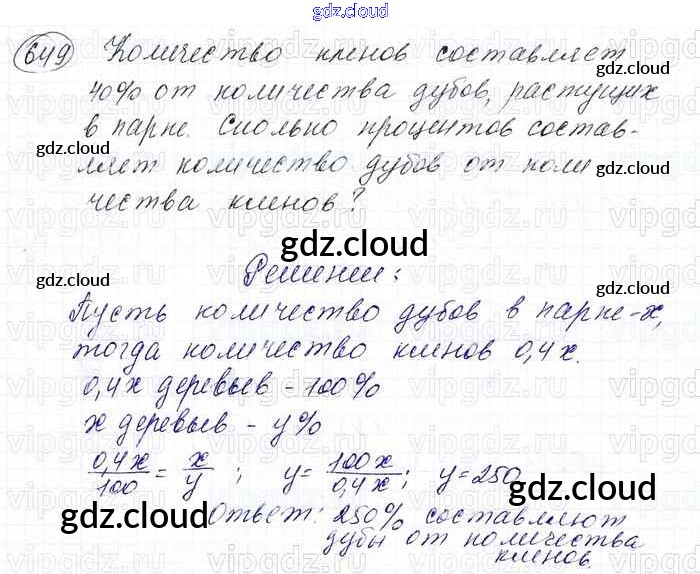 gdz.cloud
649 Количество кленов составляет
gdz.cloud
40% от количества дубов, растущих
в парке. Сколько процентов состав-
gdz.cloud
ляет количество дубов от коли
gdz.cloud
чества кленов?
gdz.cloud
Решение:
gdz.cloud
gdz.cloud
Пусть количество дубов в парке-x,
тогда количество кленов 0,4x.
0,4x деревьев - 100%
x деревьев - y%
0,4x/100 = x/y ; y = 100x/0,4x ; y = 250
gdz.cloud
gdz.cloud
gdz.cloud
Ответ: 250% составляют
дубы от количества
кленов.